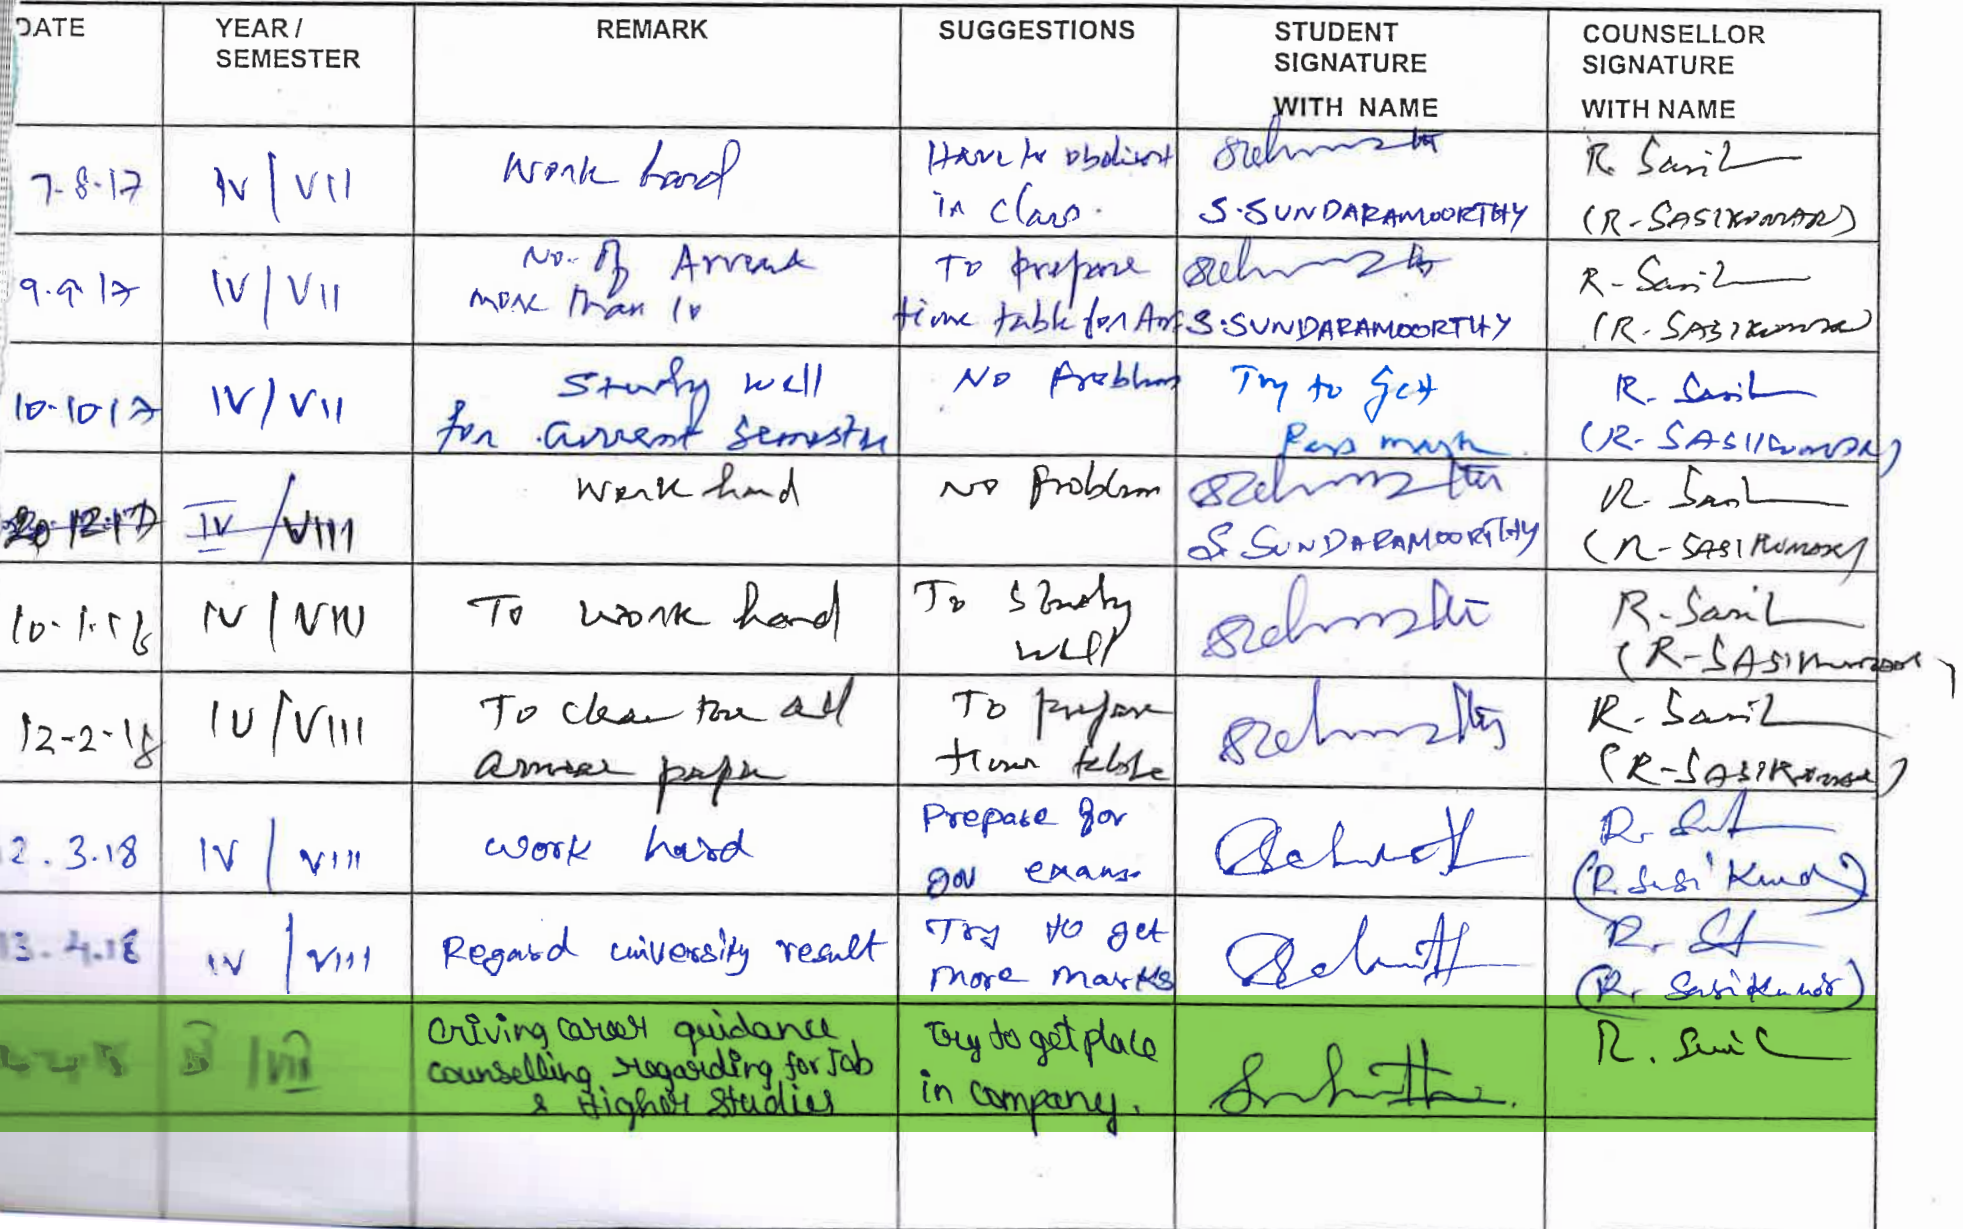 DATE
YEAR /
SEMESTER
REMARK
SUGGESTIONS
STUDENT
SIGNATURE
WITH NAME
COUNSELLOR
SIGNATURE
WITH NAME
7-8-17
IV / VII
Work hard
Have to obdient
in class.
S.SUNDARAMOORTHY
R. Sasik
(R-SASIKUMAR)
9.9.17
IV / VII
No. of Arrear
more than 10
To prepare
time table for Arr
S.SUNDARAMOORTHY
R-Sasik
(R-SASIKUMAR)
10-10-17
IV / VII
Study well
for current semester
NO Problem
Try to get
Pass mark
R. Sasik
(R-SASIKUMAR)
20.12.17
IV / VIII
Work hard
NO Problem
S.SUNDARAMOORTHY
R. Sasik
(R-SASIKUMAR)
10-1-18
IV / VIII
To work hard
To study
well
R-Sasik
(R-SASIKUMAR)
12-2-18
IV / VIII
To clear the all
arrear paper
To prepare
time table
R-Sasik
(R-SASIKUMAR)
2.3.18
IV / VIII
work hard
Prepare for
gov exams.
R.
(R. Sasikumar)
13.4.18
IV / VIII
Regard university result
Try to get
more marks
R.
(R. Sasikumar)
VIII
Giving career guidance
counselling regarding for Job
& Higher Studies
Try to get place
in company.
R. Sasik